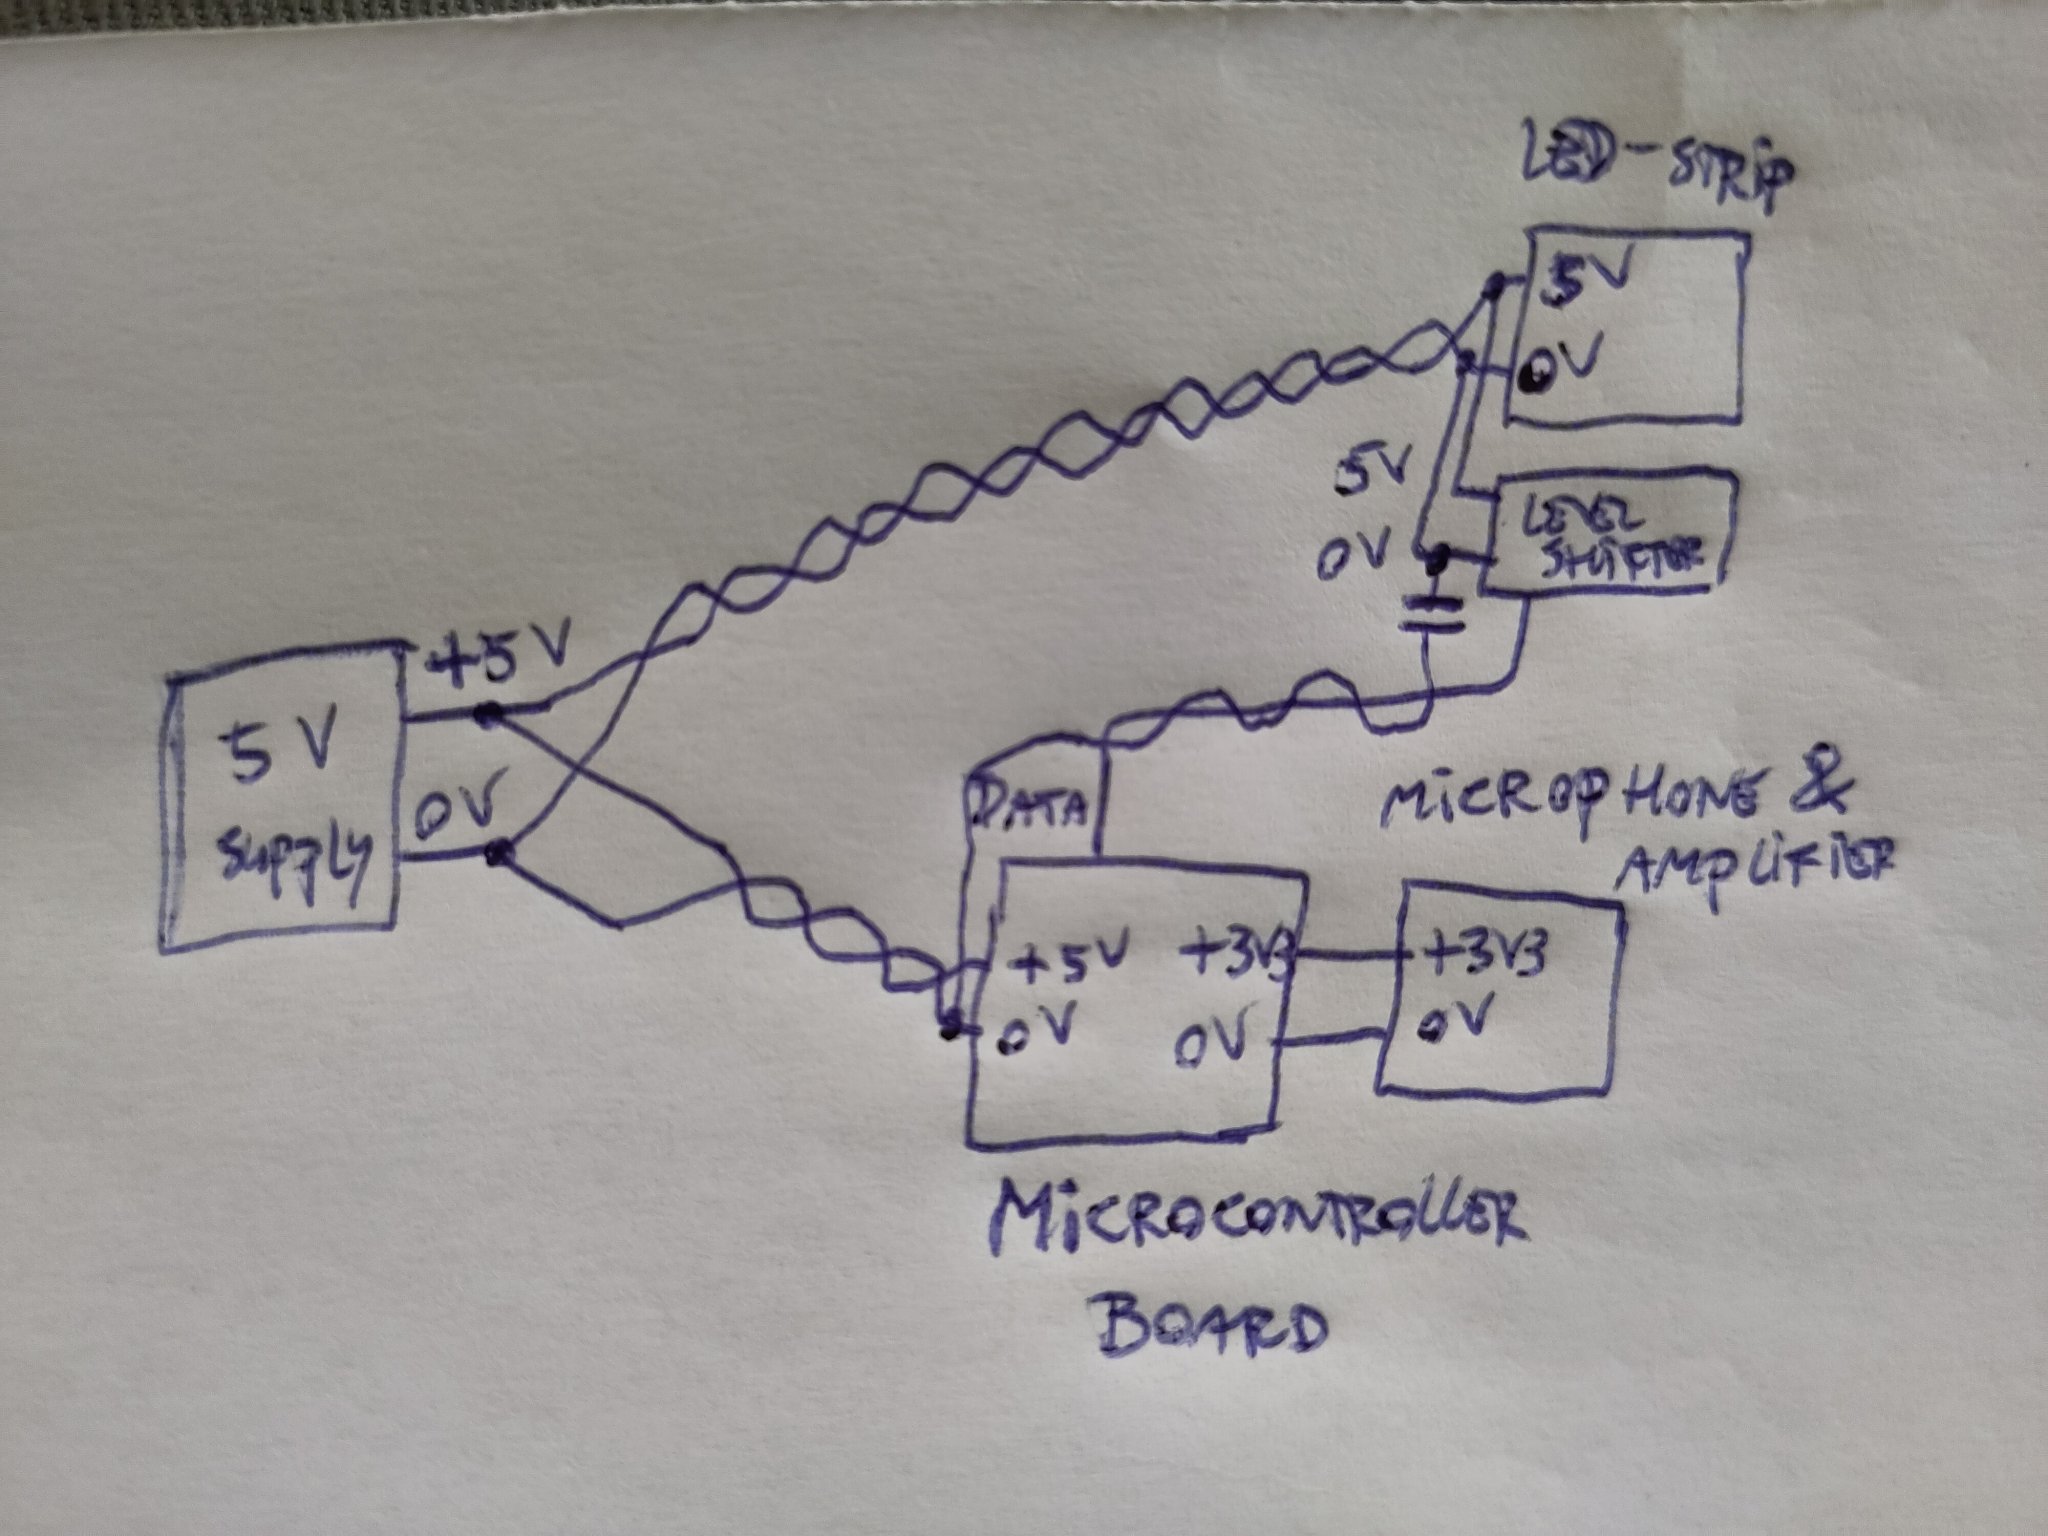 LED-STRIP
5V
0V
5V
0V
LEVEL
SHIFTER
+5V
5V
SUPPLY
0V
DATA
MICROPHONE &
AMPLIFIER
+5V +3V3
0V 0V
+3V3
0V
MICROCONTROLLER
BOARD